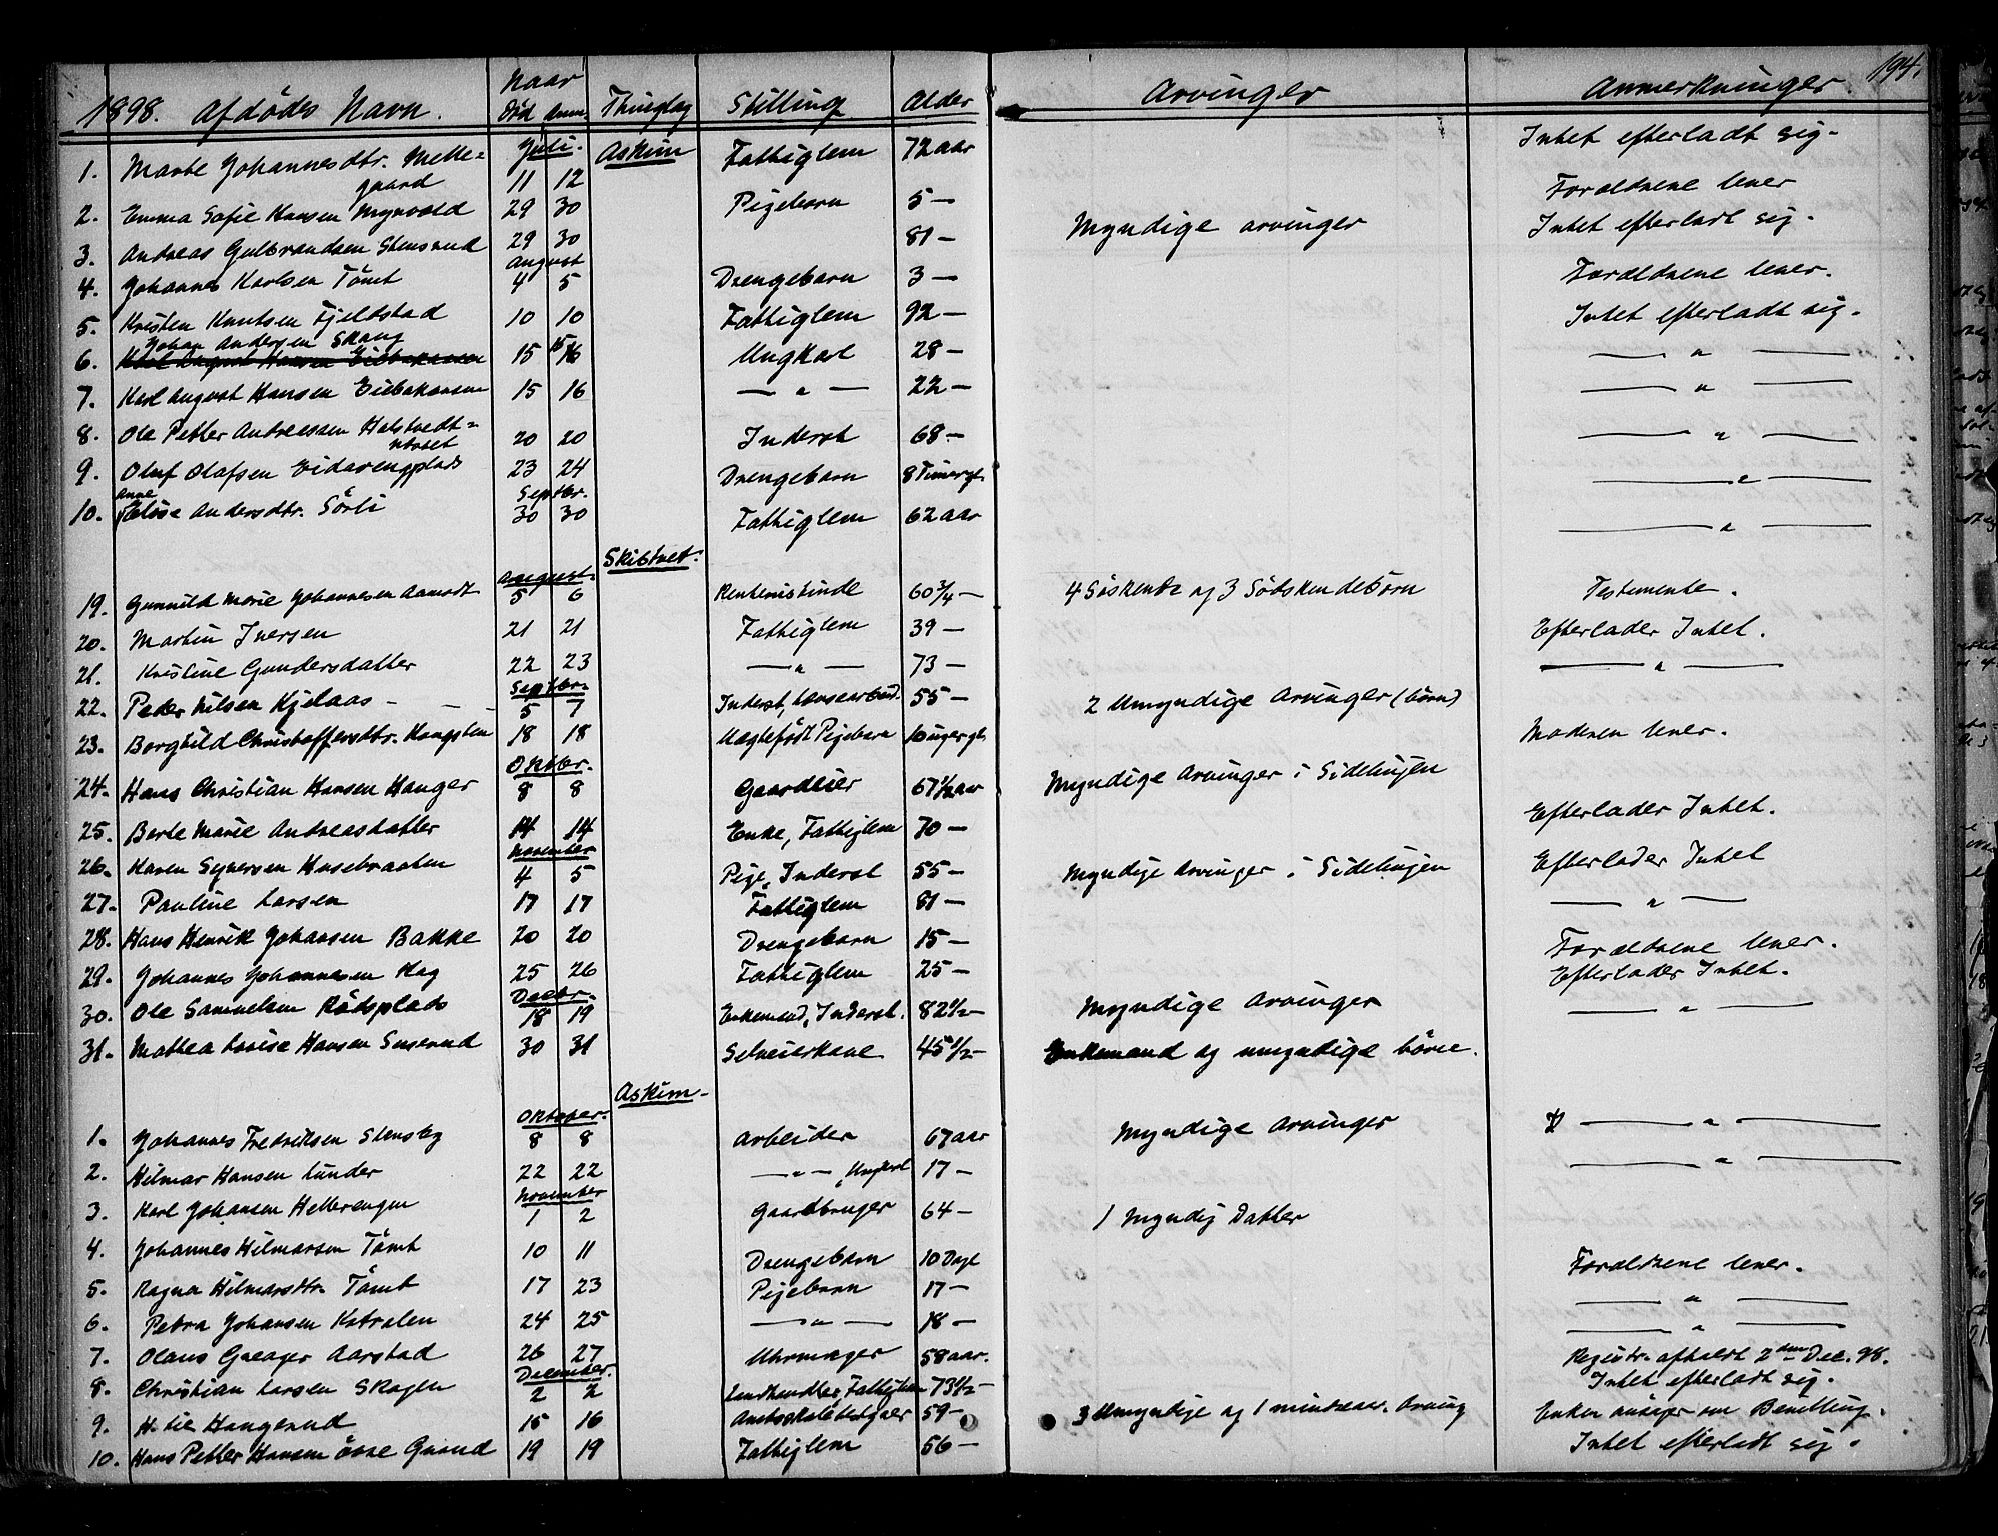 194.
1898. Afdøds Navn. Naar Død Anm. Thinglag Stilling Alder Arvinger Anmerkninger
Juli. Askim
1. Marte Johannesdtr. Melle=gaard 11 12 Fattiglem 72 aar Intet efterladt sig.
2. Emma Sofie Hansen Myrvold 29 30 Pigebarn 5 — Forældrene lever
3. Andreas Gulbrandsen Stensrud 29 30 81 — Myndige arvinger Intet efterladt sig.
August
4. Johannes Karlsen Tömt 4 5 Drengebarn 3 — Forældrene lever.
5. Kristen Knutsen Fjeldstad 10 10 Fattiglem 92 — Intet efterladt sig.
Johan Andersen Skaug
6. 15 16 Ungkarl 28 — — " —
7. Karl August Hansen 15 16 — " — 22 — — " —
8. Ole Petter Andreassen 20 20 Inderst 68 — — " —
9. Oluf Olafsen Eidarengplads 23 24 Drengebarn 8 Timer gl. — " —
Septbr.
10. Anne Andersdtr. Sörli 30 30 Fattiglem 62 aar — " —
Skibtvet.
August.
19. Gunnild Marie Johannesen Aamodt 5 6 Rentenistinde 60 3/4 — 4 Søskende og 3 Södskendebörn Testamente.
20. Martin Iversen 21 21 Fattiglem 39 — Efterlader Intet.
21. Kristine Gundersdatter 22 23 — " — 73 — — " —
Septbr.
22. Peder Nilsen Kjelaas — 5 7 Inderst, 55 — 2 Umyndige Arvinger (börn)
23. Borghild Christoffersdtr. 18 18 Uægtefödt Pigebarn 10 uger gl. Moderen lever.
Oktbr.
24. Hans Christian Hansen Hauger 8 8 Gaardeier 67 1/2 aar Myndige Arvinger i Sidelinjen
25. Berte Marie Andreasdatter 14 14 Enke, Fattiglem 70 — Efterlader Intet.
November
26. Karen Syversen Husebraaten 4 5 Pige, Inderst 55 — Myndige Arvinger i Sidelinjen Efterlader Intet
27. Pauline Larsen 17 17 Fattiglem 81 — — " —
28. Hans Henrik Johansen Bakke 20 20 Drengebarn 15 — Forældrene lever.
29. Johannes Johannesen Hag 25 26 Fattiglem 25 — Efterlader Intet.
Decbr.
30. Ole Samuelsen Rödsplads 18 19 Enkemand, Inderst. 82 1/2 — Myndige Arvinger — " —
31. Mathea Lovise Hansen 30 31 Selveierkone 45 1/2 — Enkemand og umyndige börn.
Askim —
Oktober.
1. Johannes Fredriksen Stensby 8 8 Arbeider 67 aar Myndige Arvinger — " —
2. Hilmar Hansen Lunder 22 22 — " — Ungkarl 17 — — " —
November
3. Karl Johansen Hellerengen 1 2 Gaardbruger 64 — 1 Myndig Datter
4. Johannes Hilmarsen Tömt 10 11 Drengebarn 10 Dage Forældrene lever.
5. Ragna Hilmarsdtr. Tömt 17 23 Pigebarn 17 — — " —
6. Petra Johansen 24 25 — " — 18 — — " —
7. Olaus Aarstad 26 27 Uhrmager 58 aar. Registr. afholdt 2den Dec. 98.
December.
8. Christian Larsen Skogen 2 2 Landhandler, Fattiglem 73 1/2 — Intet efterladt sig.
9. H. Lie Haugerud 15 16 59 — 3 Umyndige og 1 mindreaar. Arving Enken om Bevilling.
10. Hans Petter Hansen övre Grönd 19 19 Fattiglem 56 — Intet efterladt sig.